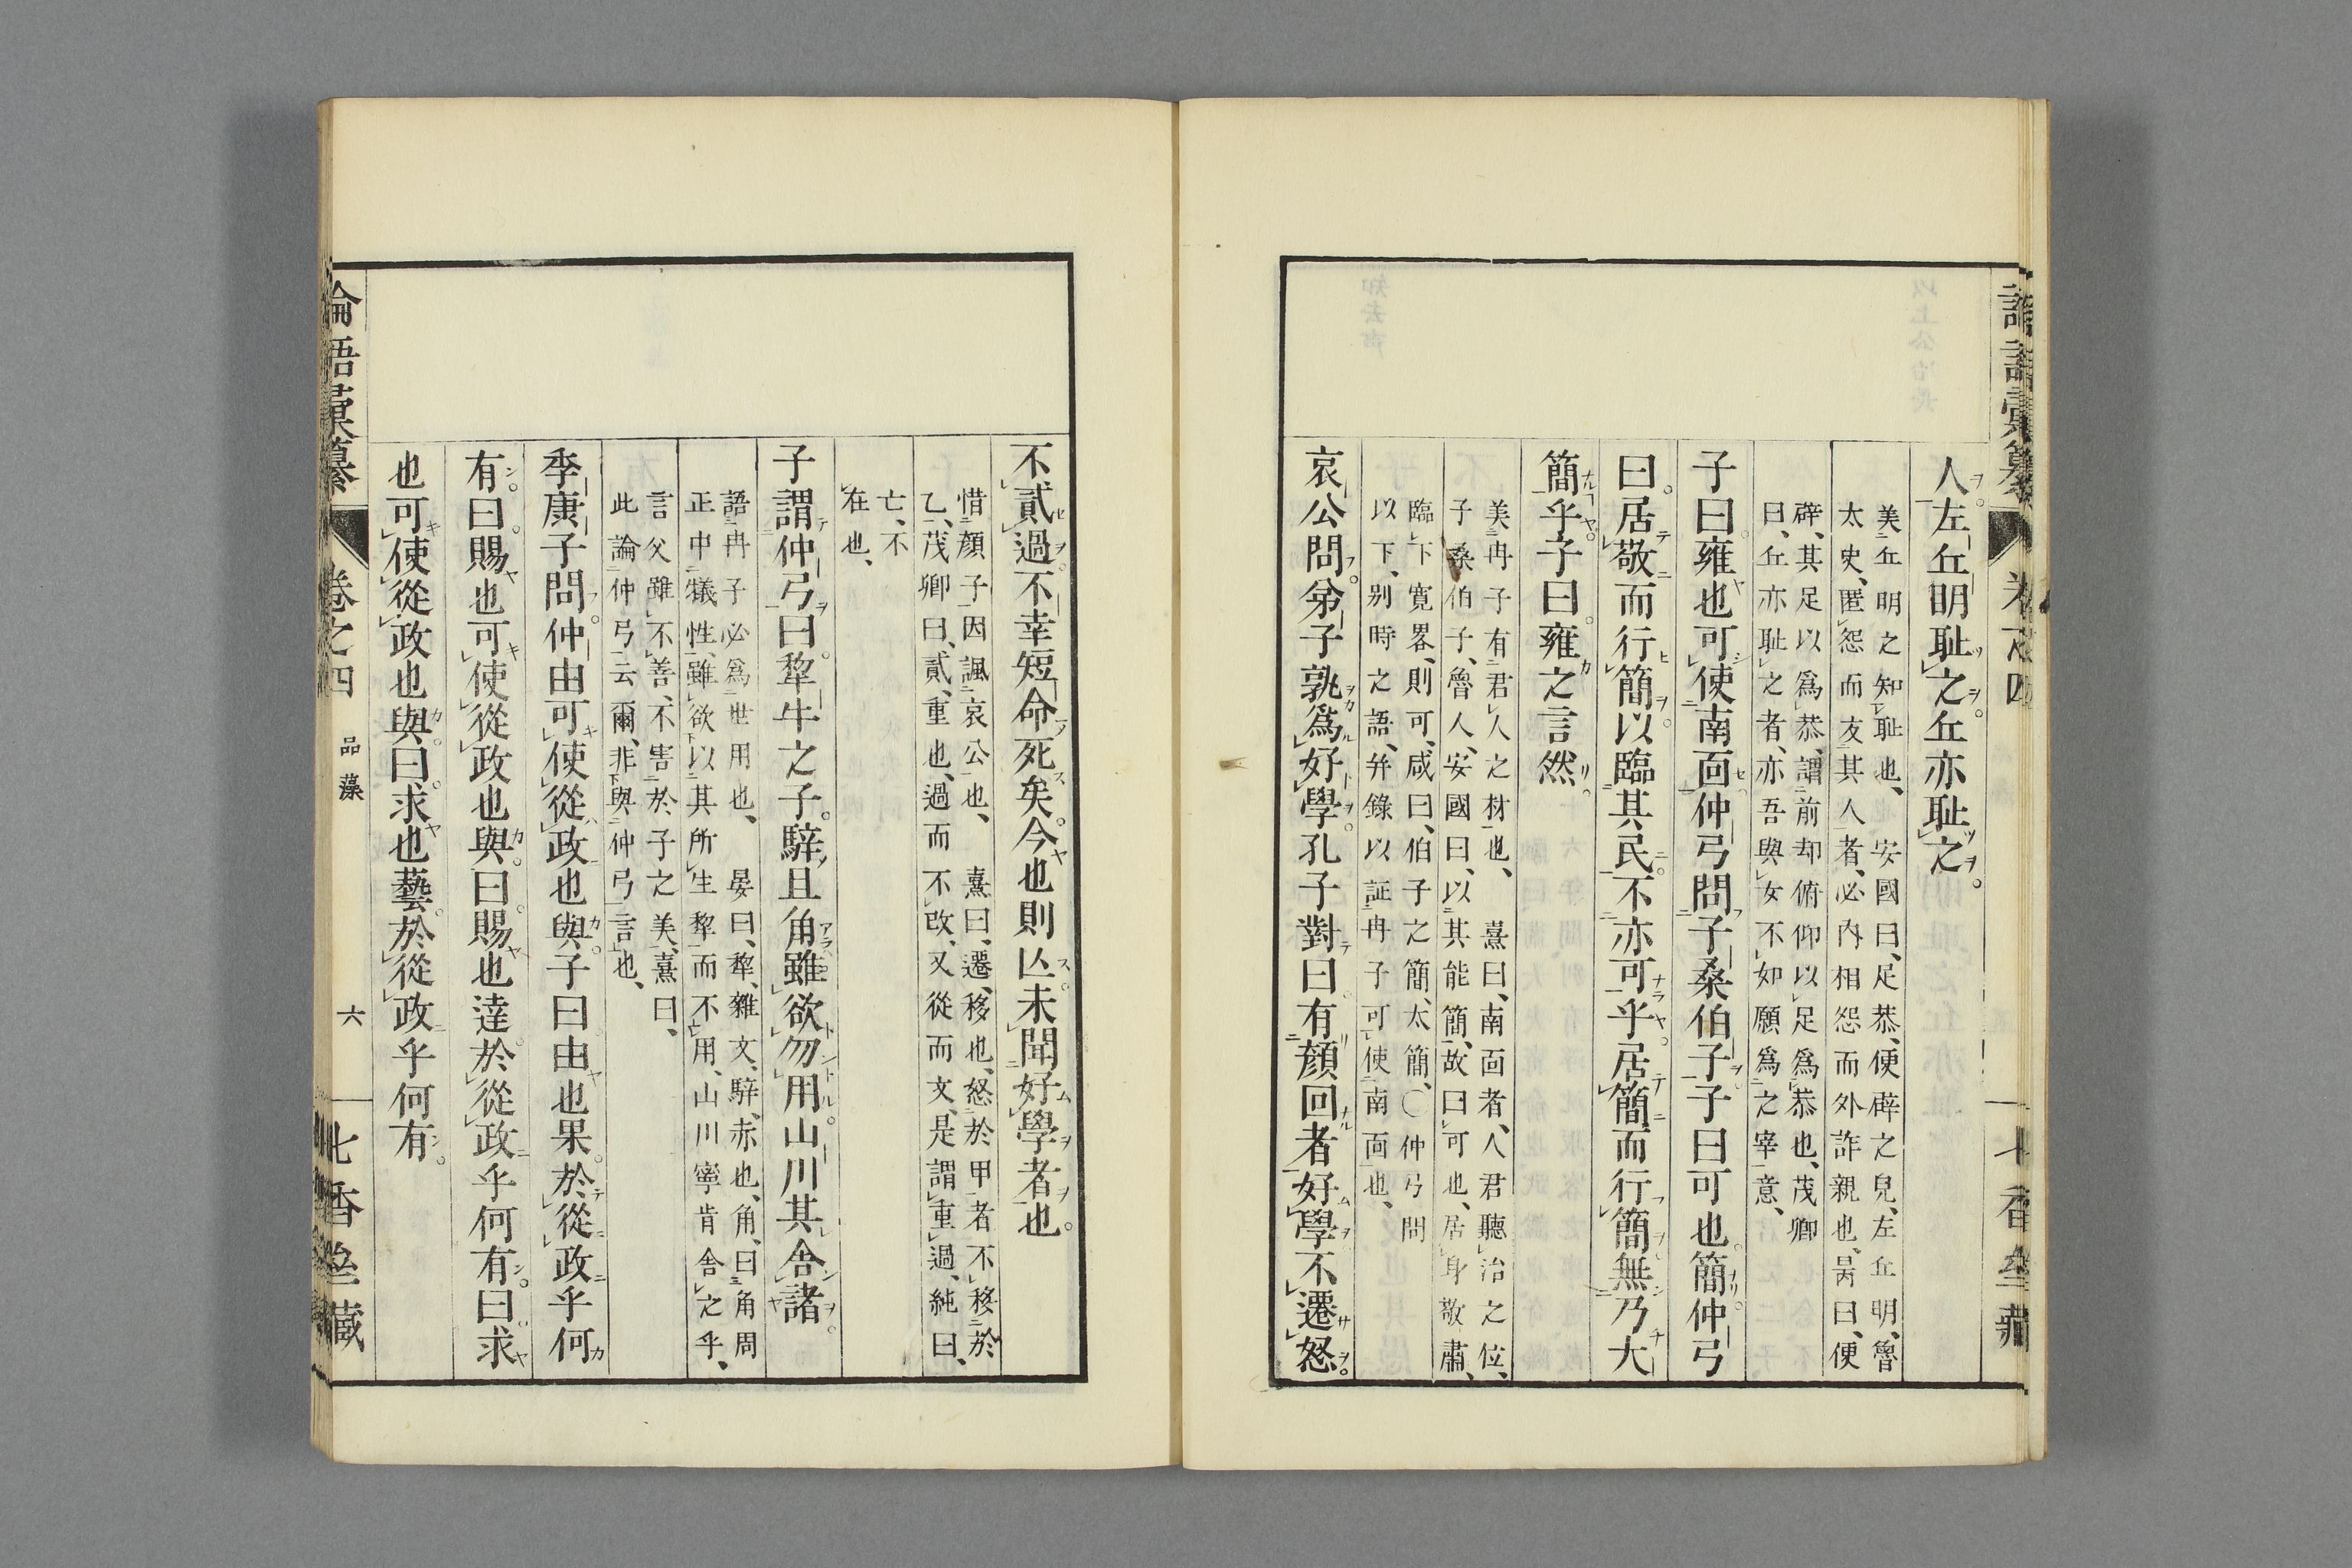 人左丘明耻之丘亦耻之
美丘明之知耻也、　安國曰、足恭、便辟之皃、左丘明、魯
太史、匿怨而友其人者、必内相怨而外詐親也、昺曰、便
辟、其足以爲恭、謂前却俯仰以足爲恭也、茂卿
曰、丘亦耻之者、亦吾與女不如願爲之宰意、
子曰雍也可使南面仲弓問子桑伯子子曰可也簡仲弓
曰居敬而行簡以臨其民不亦可乎居簡而行簡無乃大
簡乎子曰雍之言然
美冉子有君人之材也、　熹曰、南面者、人君聽治之位、
子桑伯子、魯人、安國曰、以其能簡、故曰可也、居身敬肅、
臨下寛畧、則可、咸曰、伯子之簡、太簡、〇仲弓問
以下、别時之語、弁錄以証冉子可使南面也、
哀公問弟子孰爲好學孔子對曰有顏回者好學不遷怒
不貳過不幸短命死矣今也則亾未聞好學者也
惜顏子因諷哀公也、　熹曰、遷、移也、怒於甲者不移於
乙、茂卿曰、貳、重也、過而不改、又從而文、是謂重過、純曰、
亡、不
在也、
子謂仲弓曰犂牛之子騂且角雖欲勿用山川其舍諸
語冉子必爲世用也、　晏曰、犂、雜文、騂、赤也、角、曰角周
正中犧牲、雖欲以其所生犂而不用、山川寧肯舍之乎、
言父雖不善、不害於子之美、熹曰、
此論仲弓云爾、非與仲弓言也、
季康子問仲由可使從政也與子曰由也果於從政乎何
有曰賜也可使從政也與曰賜也達於從政乎何有曰求
也可使從政也與曰求也藝於從政乎何有
論語彙纂　卷之四　品藻　六　七香㘴藏